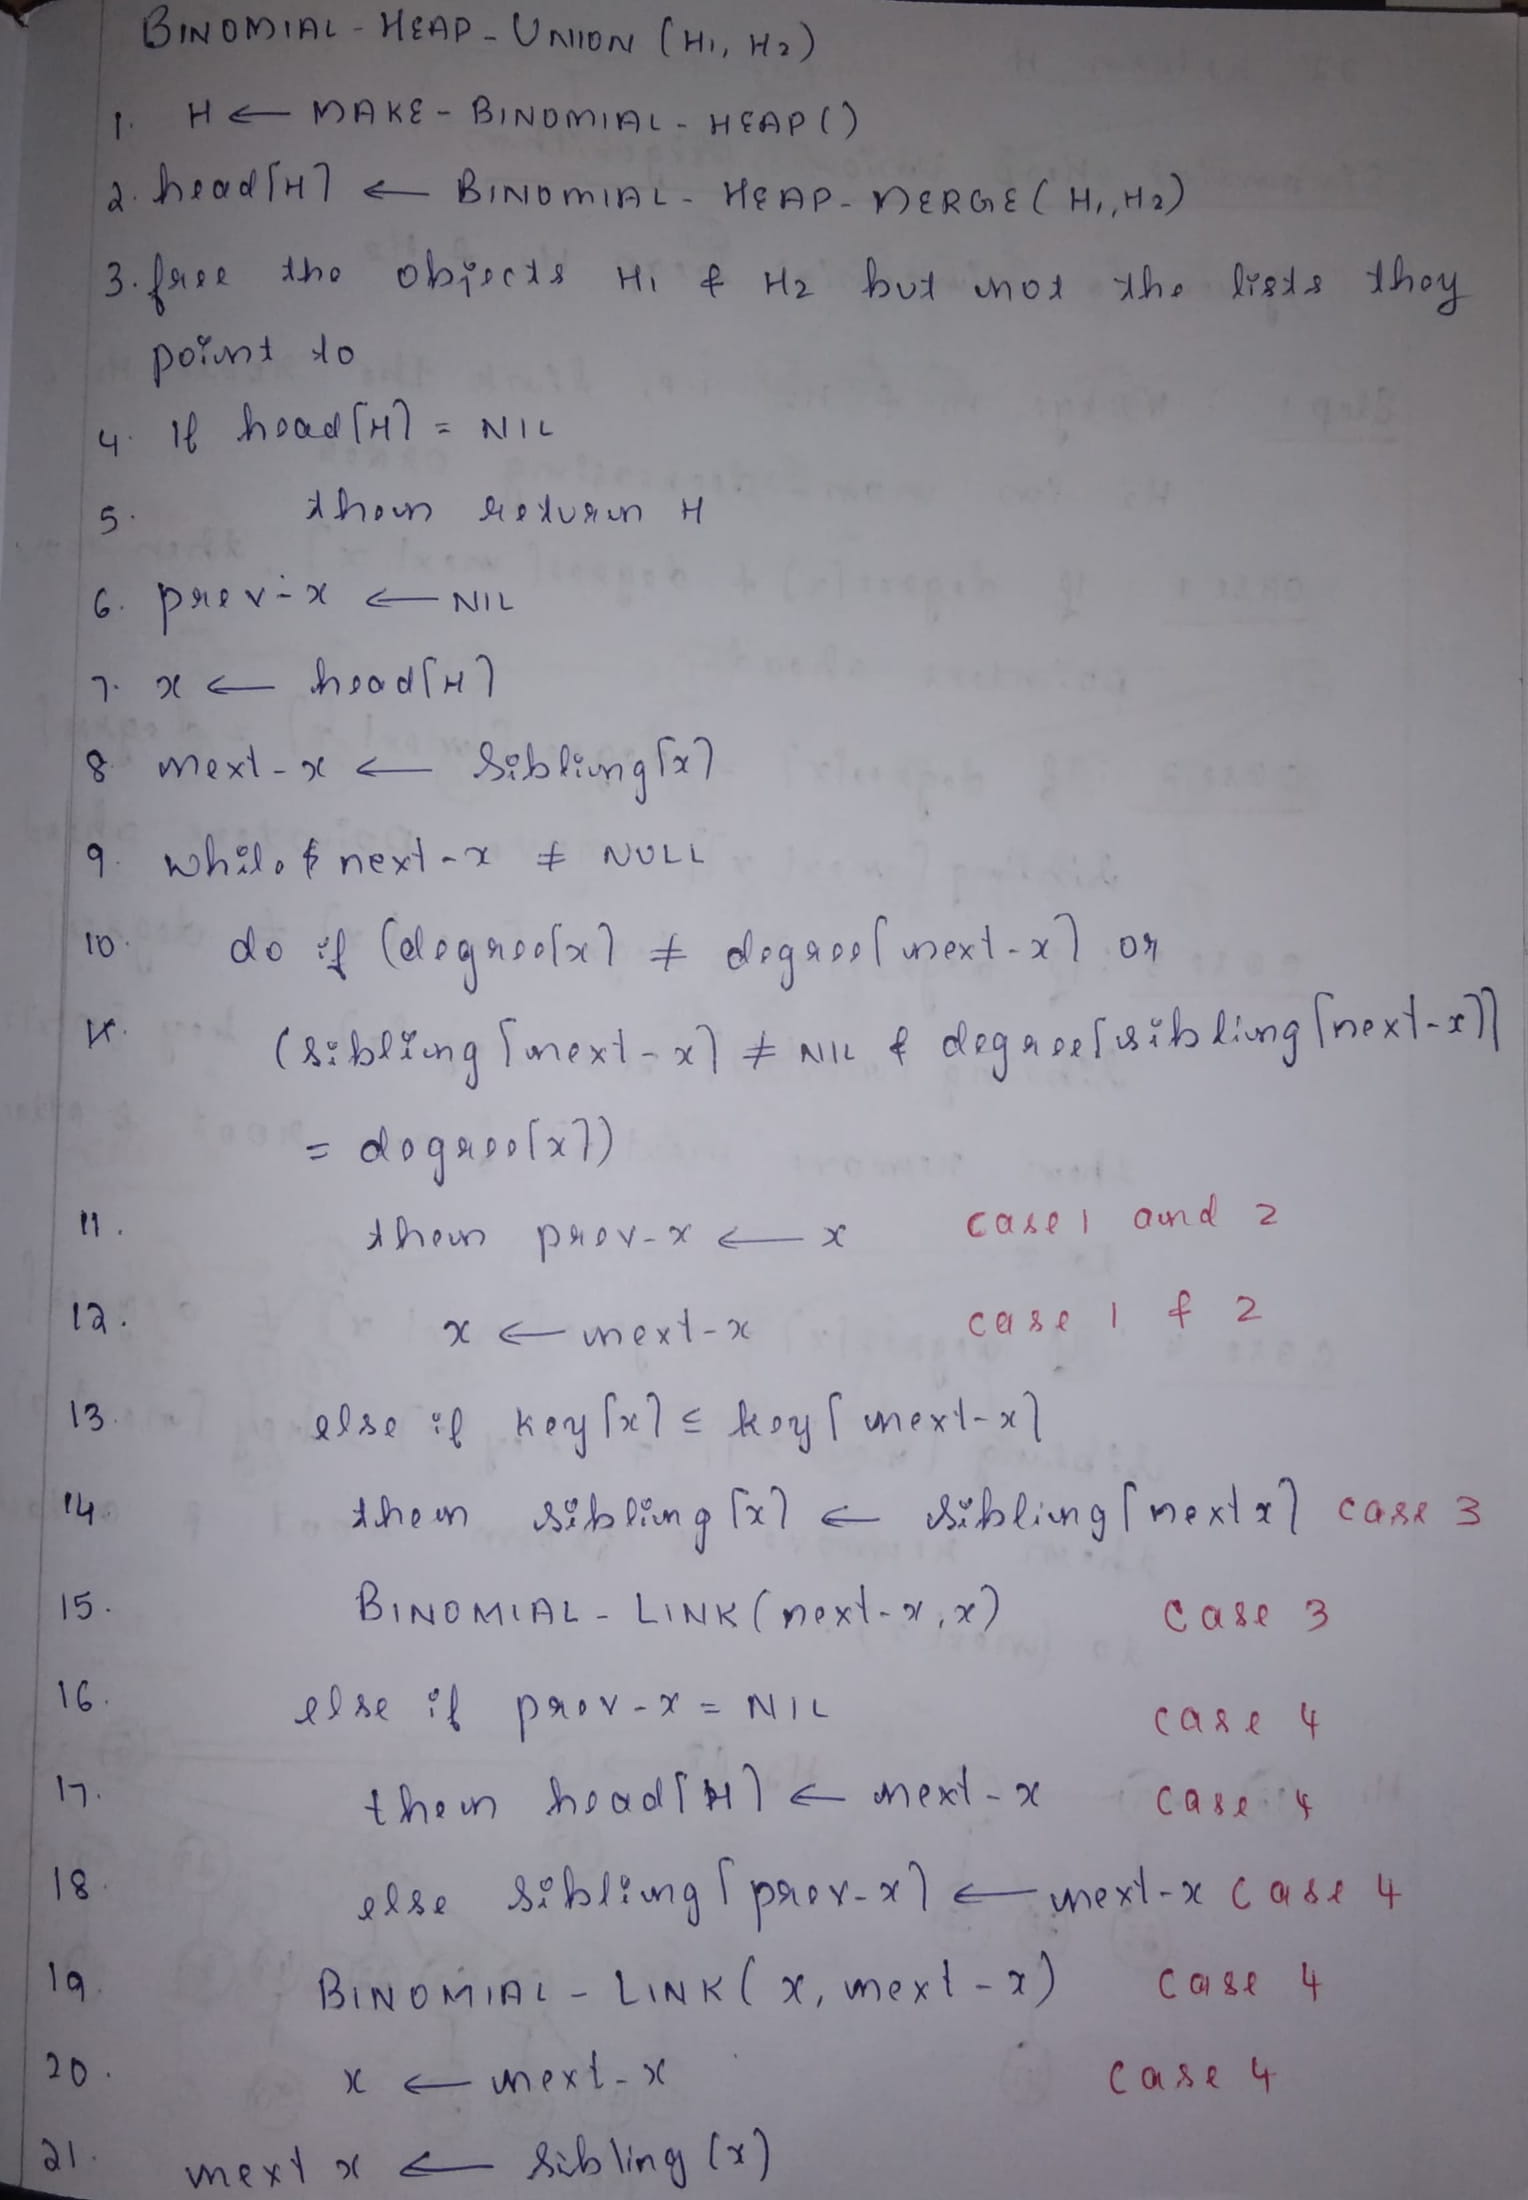 BINOMIAL - HEAP - UNION (H1, H2)
1. H ← MAKE - BINOMIAL - HEAP()
2. head[H] ← BINOMIAL - HEAP - MERGE (H1, H2)
3. free the objects H1 & H2 but not the lists they
point to
4. If head[H] = NIL
5. then return H
6. prev-x ← NIL
7. x ← head[H]
8. next-x ← sibling[x]
9. while next-x ≠ NULL
10. do if (degree[x] ≠ degree[next-x] or
(sibling[next-x] ≠ NIL & degree[sibling[next-x]]
= degree[x])
11. then prev-x ← x case 1 and 2
12. x ← next-x case 1 & 2
13. else if key[x] ≤ key[next-x]
14. then sibling[x] ← sibling[next x] case 3
15. BINOMIAL - LINK (next-x, x) case 3
16. else if prev-x = NIL case 4
17. then head[H] ← next-x case 4
18. else sibling[prev-x] ← next-x case 4
19. BINOMIAL - LINK (x, next-x) case 4
20. x ← next-x case 4
21. next x ← sibling (x)